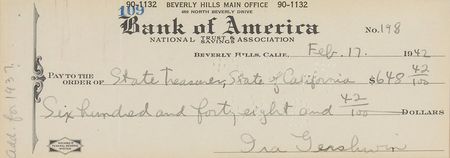 90-1132 BEVERLY HILLS MAIN OFFICE 90-1132
109 469 NORTH BEVERLY DRIVE
Bank of America No. 198
NATIONAL TRUST & SAVINGS ASSOCIATION
BEVERLY HILLS, CALIF. Feb. 17. 1942
PAY TO THE ORDER OF State Treasurer, State of California $648 42/100
Six hundred and forty eight and 42/100 DOLLARS
Ira Gershwin
add. for 1937.